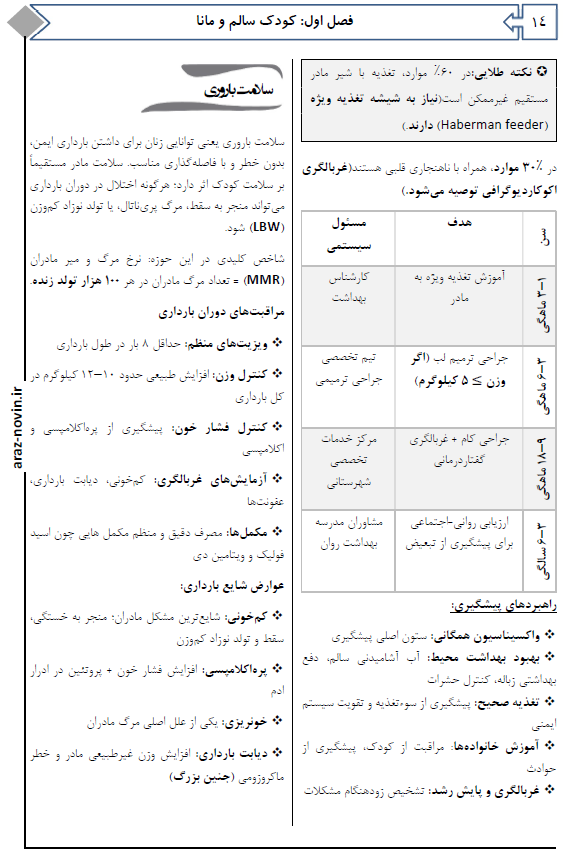 ۱۴
فصل اول: کودک سالم و مانا
✪ نکته طلایی:در ۶۰٪ موارد، تغذیه با شیر مادر
مستقیم غیرممکن است(نیاز به شیشه تغذیه ویژه
(Haberman feeder) دارند.)
در ۳۰٪ موارد، همراه با ناهنجاری قلبی هستند(غربالگری
اکوکاردیوگرافی توصیه می‌شود.)
سن
هدف
مسئول
سیستمی
۱-۳ ماهگی
آموزش تغذیه ویژه به
مادر
کارشناس
بهداشت
۳-۶ ماهگی
جراحی ترمیم لب (اگر
وزن ≥ ۵ کیلوگرم)
تیم تخصصی
جراحی ترمیمی
۹-۱۸ ماهگی
جراحی کام + غربالگری
گفتاردرمانی
مرکز خدمات
تخصصی
شهرستانی
۳-۶ سالگی
ارزیابی روانی-اجتماعی
برای پیشگیری از تبعیض
مشاوران مدرسه
بهداشت روان
راهبردهای پیشگیری:
❖ واکسیناسیون همگانی: ستون اصلی پیشگیری
❖ بهبود بهداشت محیط: آب آشامیدنی سالم، دفع
بهداشتی زباله، کنترل حشرات
❖ تغذیه صحیح: پیشگیری از سوءتغذیه و تقویت سیستم
ایمنی
❖ آموزش خانواده‌ها: مراقبت از کودک، پیشگیری از
حوادث
❖ غربالگری و پایش رشد: تشخیص زودهنگام مشکلات
سلامت باروری
سلامت باروری یعنی توانایی زنان برای داشتن بارداری ایمن،
بدون خطر و با فاصله‌گذاری مناسب. سلامت مادر مستقیماً
بر سلامت کودک اثر دارد: هرگونه اختلال در دوران بارداری
می‌تواند منجر به سقط، مرگ پری‌ناتال، یا تولد نوزاد کم‌وزن
(LBW) شود.
شاخص کلیدی در این حوزه: نرخ مرگ و میر مادران
(MMR) = تعداد مرگ مادران در هر ۱۰۰ هزار تولد زنده.
مراقبت‌های دوران بارداری
❖ ویزیت‌های منظم: حداقل ۸ بار در طول بارداری
❖ کنترل وزن: افزایش طبیعی حدود ۱۰–۱۲ کیلوگرم در
کل بارداری
❖ کنترل فشار خون: پیشگیری از پره‌اکلامپسی و
اکلامپسی
❖ آزمایش‌های غربالگری: کم‌خونی، دیابت بارداری،
عفونت‌ها
❖ مکمل‌ها: مصرف دقیق و منظم مکمل هایی چون اسید
فولیک و ویتامین دی
عوارض شایع بارداری:
❖ کم‌خونی: شایع‌ترین مشکل مادران؛ منجر به خستگی،
سقط و تولد نوزاد کم‌وزن
❖ پره‌اکلامپسی: افزایش فشار خون + پروتئین در ادرار
ادم
❖ خونریزی: یکی از علل اصلی مرگ مادران
❖ دیابت بارداری: افزایش وزن غیرطبیعی مادر و خطر
ماکروزومی (جنین بزرگ)
araz-novin.ir